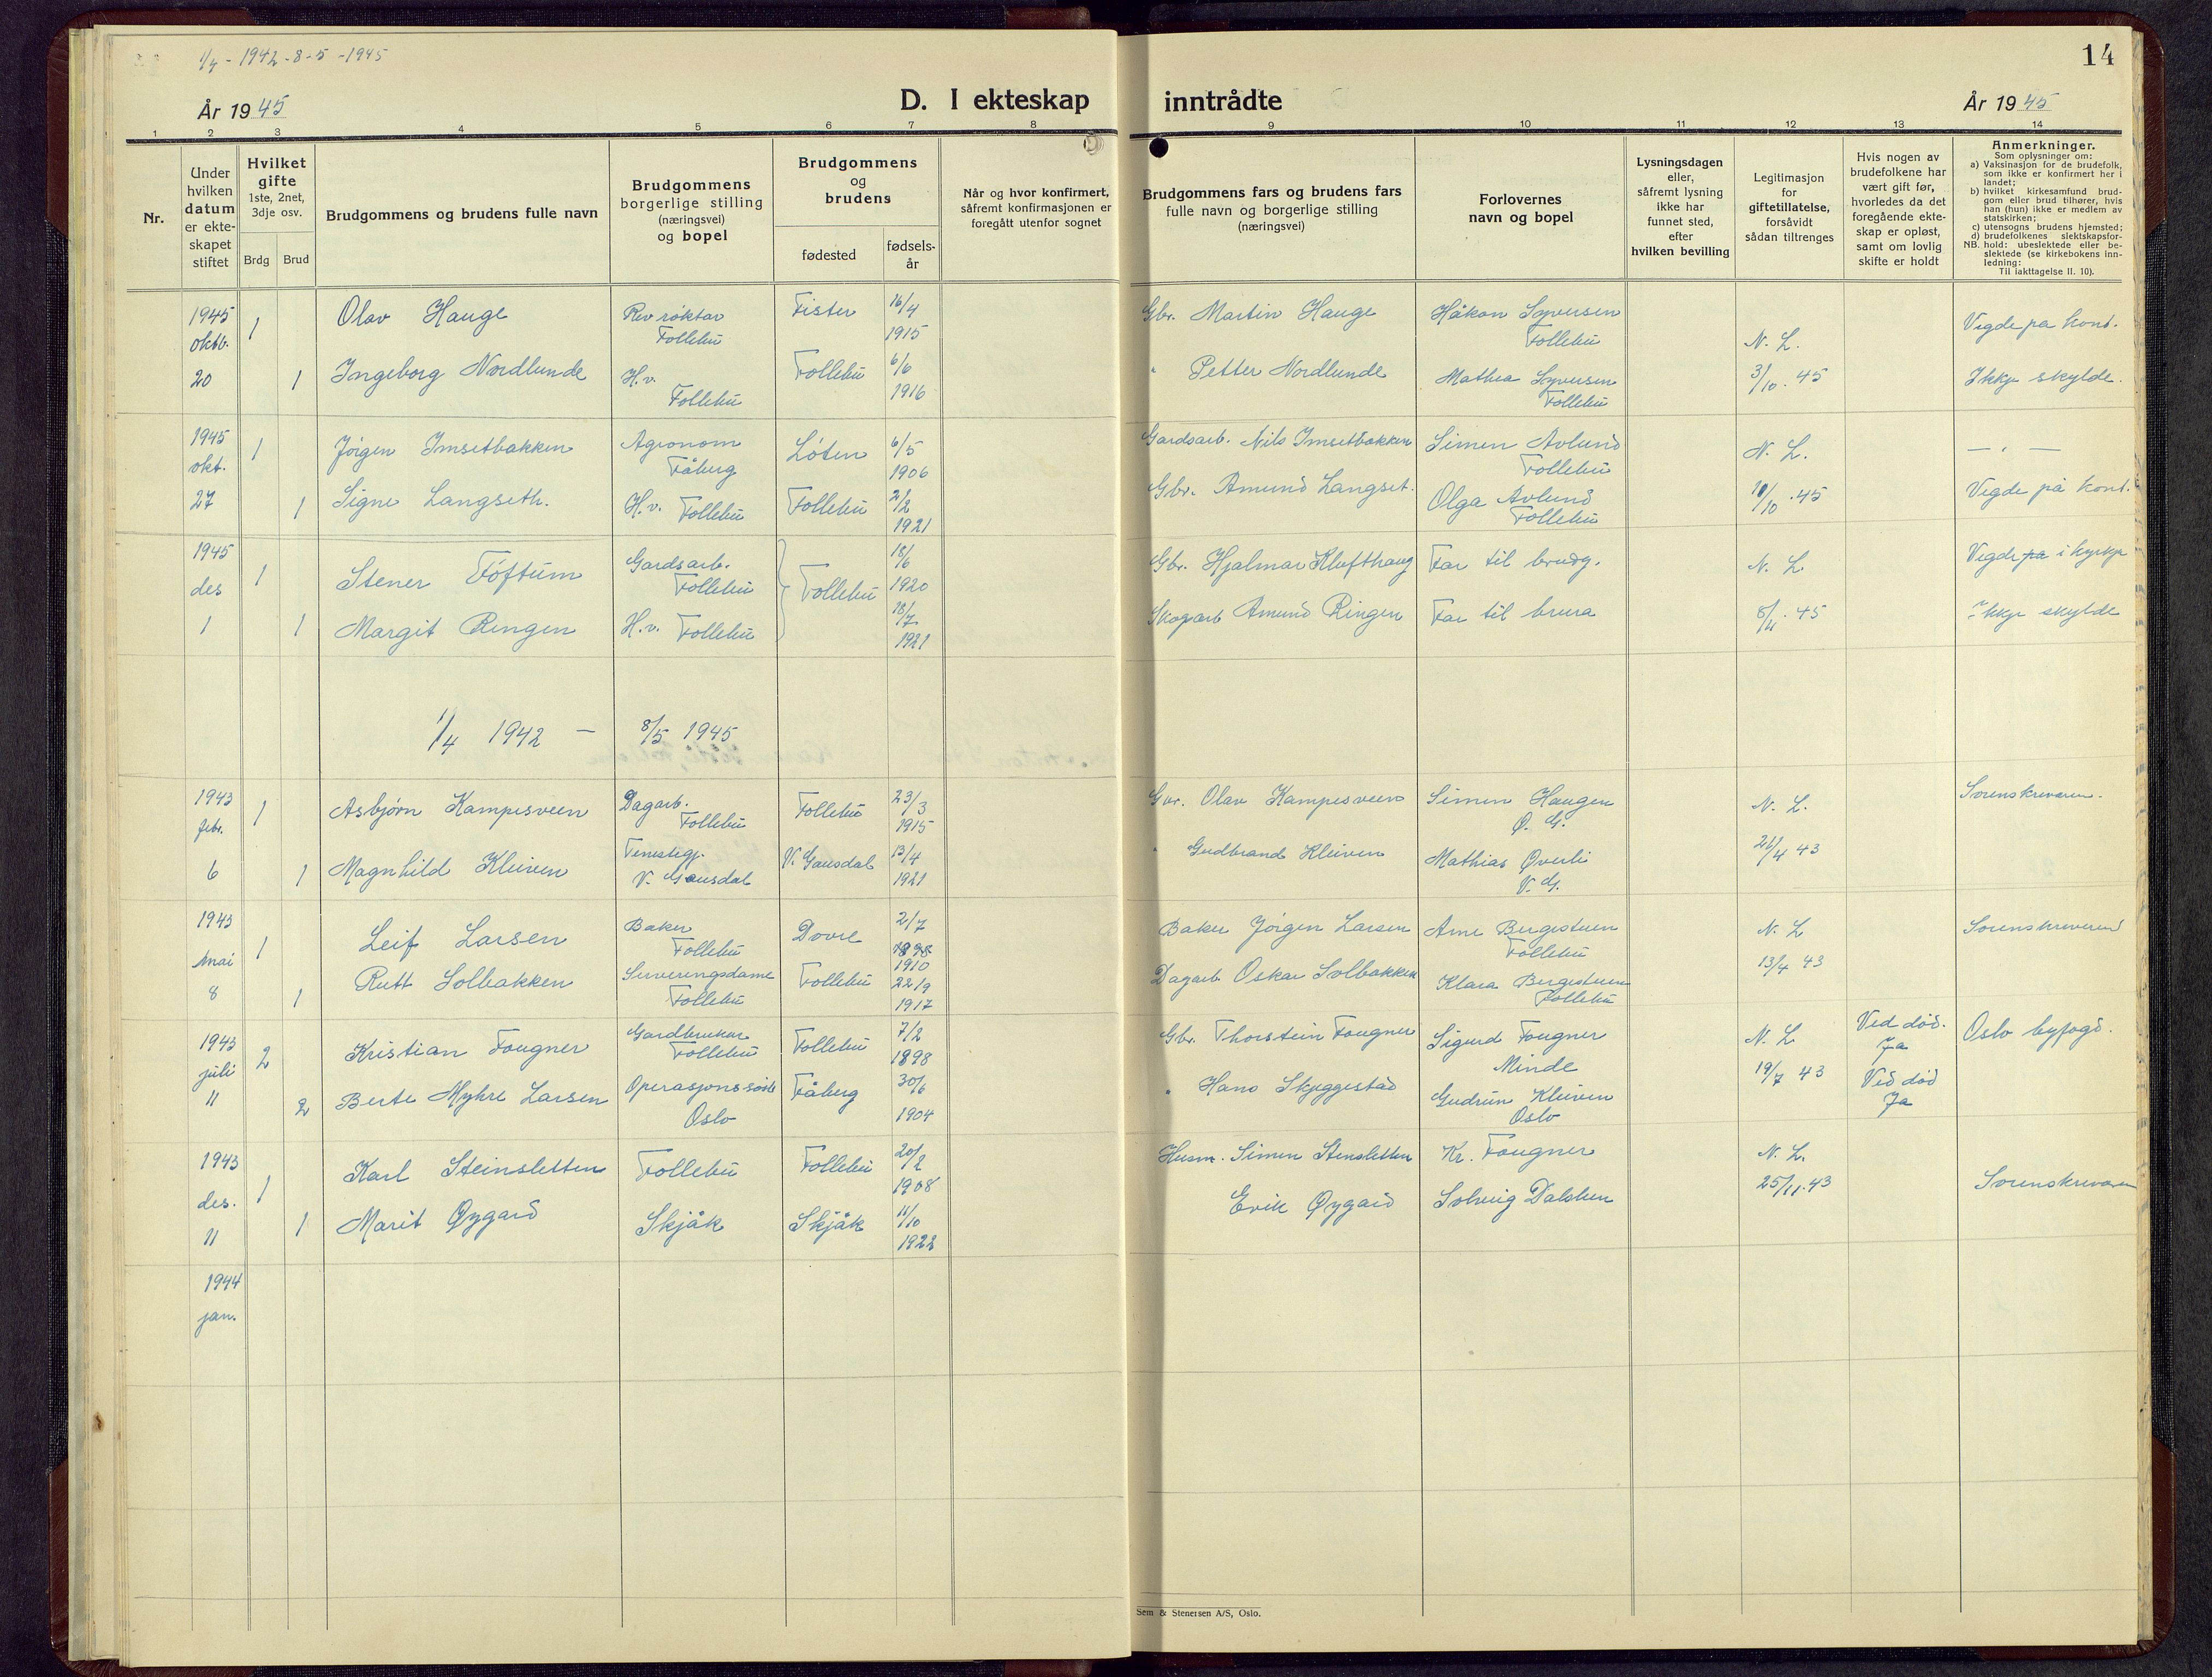 1/4 - 1942 - 8 - 5 - 1945
14
År 1945
D. I ekteskap inntrådte
År 1945
1 2 3 4 5 6 7 8 9 10 11 12 13 14
Nr.
Under hvilken datum er ekteskapet stiftet
Hvilket gifte 1ste, 2net, 3dje osv.
Brdg Brud
Brudgommens og brudens fulle navn
Brudgommens borgerlige stilling (næringsvei) og bopel
Brudgommens og brudens
fødested
fødselsår
Når og hvor konfirmert, såfremt konfirmasjonen er foregått utenfor sognet
Brudgommens fars og brudens fars fulle navn og borgerlige stilling (næringsvei)
Forlovernes navn og bopel
Lysningsdagen eller, såfremt lysning ikke har funnet sted, efter hvilken bevilling
Legitimasjon for giftetillatelse, forsåvidt sådan tiltrenges
Hvis nogen av brudefolkene har vært gift før, hvorledes da det foregående ekteskap er opløst, samt om lovlig skifte er holdt
Anmerkninger.
Som oplysninger om:
a) Vaksinasjon for de brudefolk, som ikke er konfirmert her i landet;
b) hvilket kirkesamfund brudgom eller brud tilhører, hvis han (hun) ikke er medlem av statskirken;
c) utensogns brudens hjemsted;
d) brudefolkenes slektskapsforhold: ubeslektede eller beslektede (se kirkebokens innledning:
NB.
Til iakttagelse II. 10).
1945 oktb. 20
1
Olav Hauge
Revrøktar Follebu
Fister
16/4 1915
Gbr. Martin Hauge
Håkon Syversen Follebu
N. L.
Vigde på kont.
1
Ingeborg Nordlunde
H.v. Follebu
Follebu
6/6 1916
" Petter Nordlunde
Mathea Syversen Follebu
3/10. 45
Ikkje skylde.
1945 okt. 27
1
Jørgen Imsetbakken
Agronom Fåberg
Løten
6/5 1906
Gardsarb. Nils Imsetbakken
Simen Avlund Follebu
N. L.
— " —
1
Signe Langseth.
H.v. Follebu
Follebu
2/2 1921
Gbr. Amund Langset.
Olga Avlund Follebu
10/10. 45
Vigde på kont.
1945 des 1
1
Stener Toftum
Gardsarb. Follebu
Follebu
18/6 1920
Gbr. Hjalmar Klufthaug
Far til brudg.
N. L.
Vigde på i kyrkje
1
Margit Ringen
H.v. Follebu
18/7 1921
Skogarb Amund Ringen
Far til brura
8/11. 45
Ikkje skylde
1/4 1942 — 8/5 1945
1943 febr. 6
1
Asbjørn Kampesveen
Dagarb. Follebu
Follebu
23/3 1915
Gbr. Olav Kampesveen
Simen Haugen Ø. G.
N. L.
Sorenskrivaren.
1
Magnhild Kleiven
Tenestegj. V. Gausdal
V. Gausdal
13/4 1921
" Gudbrand Kleiven
Mathias Øverli V. G.
43
1943 mai 8
1
Leif Larsen
Baker Follebu
Dovre
2/7 1910
Baker Jørgen Larsen
Arne Bergesteen Follebu
N. L
Sorenskriveren
1
Rutt Solbakken
Serveringsdame Follebu
Follebu
22/9 1917
Dagarb. Oskar Solbakken
Klara Bergesteen Follebu
13/4 43
1943 juli 11
2
Kristian Fougner
Gardbrukar Follebu
Follebu
7/2 1898
Gbr. Thorstein Fougner
Sigurd Fougner Minde
N. L
Ved død. Ja
Oslo byfogd.
2
Berte Myhre Larsen
Operasjonssøste Oslo
Fåberg
30/6 1904
" Hans Skjeggestad
Gudrun Kleiven Oslo
19/7 43
Ved død Ja
1943 des. 11
1
Karl Steinsletten
Follebu
Follebu
20/2 1908
Husm. Simen Stensletten
Kr. Fougner
N. L.
Sorenskrivaren
1
Marit Øygard
Skjåk
Skjåk
11/10 1922
Erik Øygard
Solveig Dalsben
25/11. 43
1944 jan.
Sem & Stenersen A/S, Oslo.